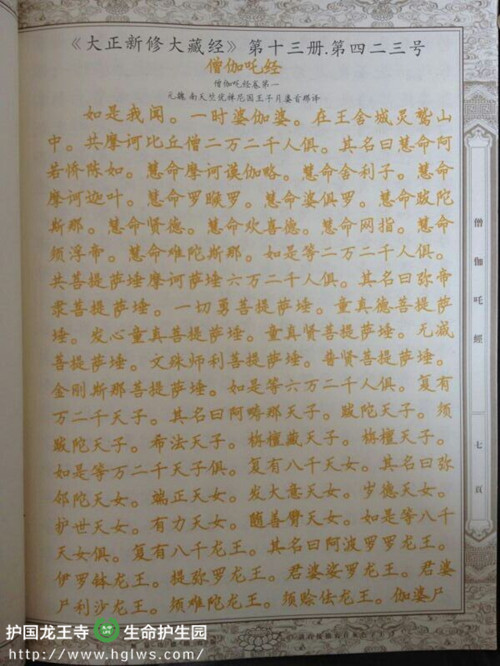 《大正新修大藏经》第十三册.第四二三号
僧伽吒经
僧伽吒经卷第一
元魏 南天竺优禅尼国王子月婆首那译
如是我闻。一时婆伽婆。在王舍城灵鹫山
中。共摩诃比丘僧二万二千人俱。其名曰慧命阿
若憍陈如。慧命摩诃谟伽略。慧命舍利子。慧命
摩诃迦叶。慧命罗睺罗。慧命婆俱罗。慧命跋陀
斯那。慧命贤德。慧命欢喜德。慧命网指。慧命
须浮帝。慧命难陀斯那。如是等二万二千人俱。
共菩提萨埵摩诃萨埵六万二千人俱。其名曰弥帝
隶菩提萨埵。一切勇菩提萨埵。童真德菩提萨
埵。发心童真菩提萨埵。童真贤菩提萨埵。无减
菩提萨埵。文殊师利菩提萨埵。普贤菩提萨埵。
金刚斯那菩提萨埵。如是等六万二千人俱。复有
万二千天子。其名曰阿畴那天子。跋陀天子。须
跋陀天子。希法天子。栴檀藏天子。栴檀天子。
如是等万二千天子俱。复有八千天女。其名曰弥
邻陀天女。端正天女。发大意天女。岁德天女。
护世天女。有力天女。随善臂天女。如是等八千
天女俱。复有八千龙王。其名曰阿波罗罗龙王。
伊罗钵龙王。提弥罗龙王。君婆娑罗龙王。君婆
尸利沙龙王。须难陀龙王。须赊佉龙王。伽婆尸
僧伽吒經
七頁
护国龙王寺 生命护生园
http://www.hglws.com